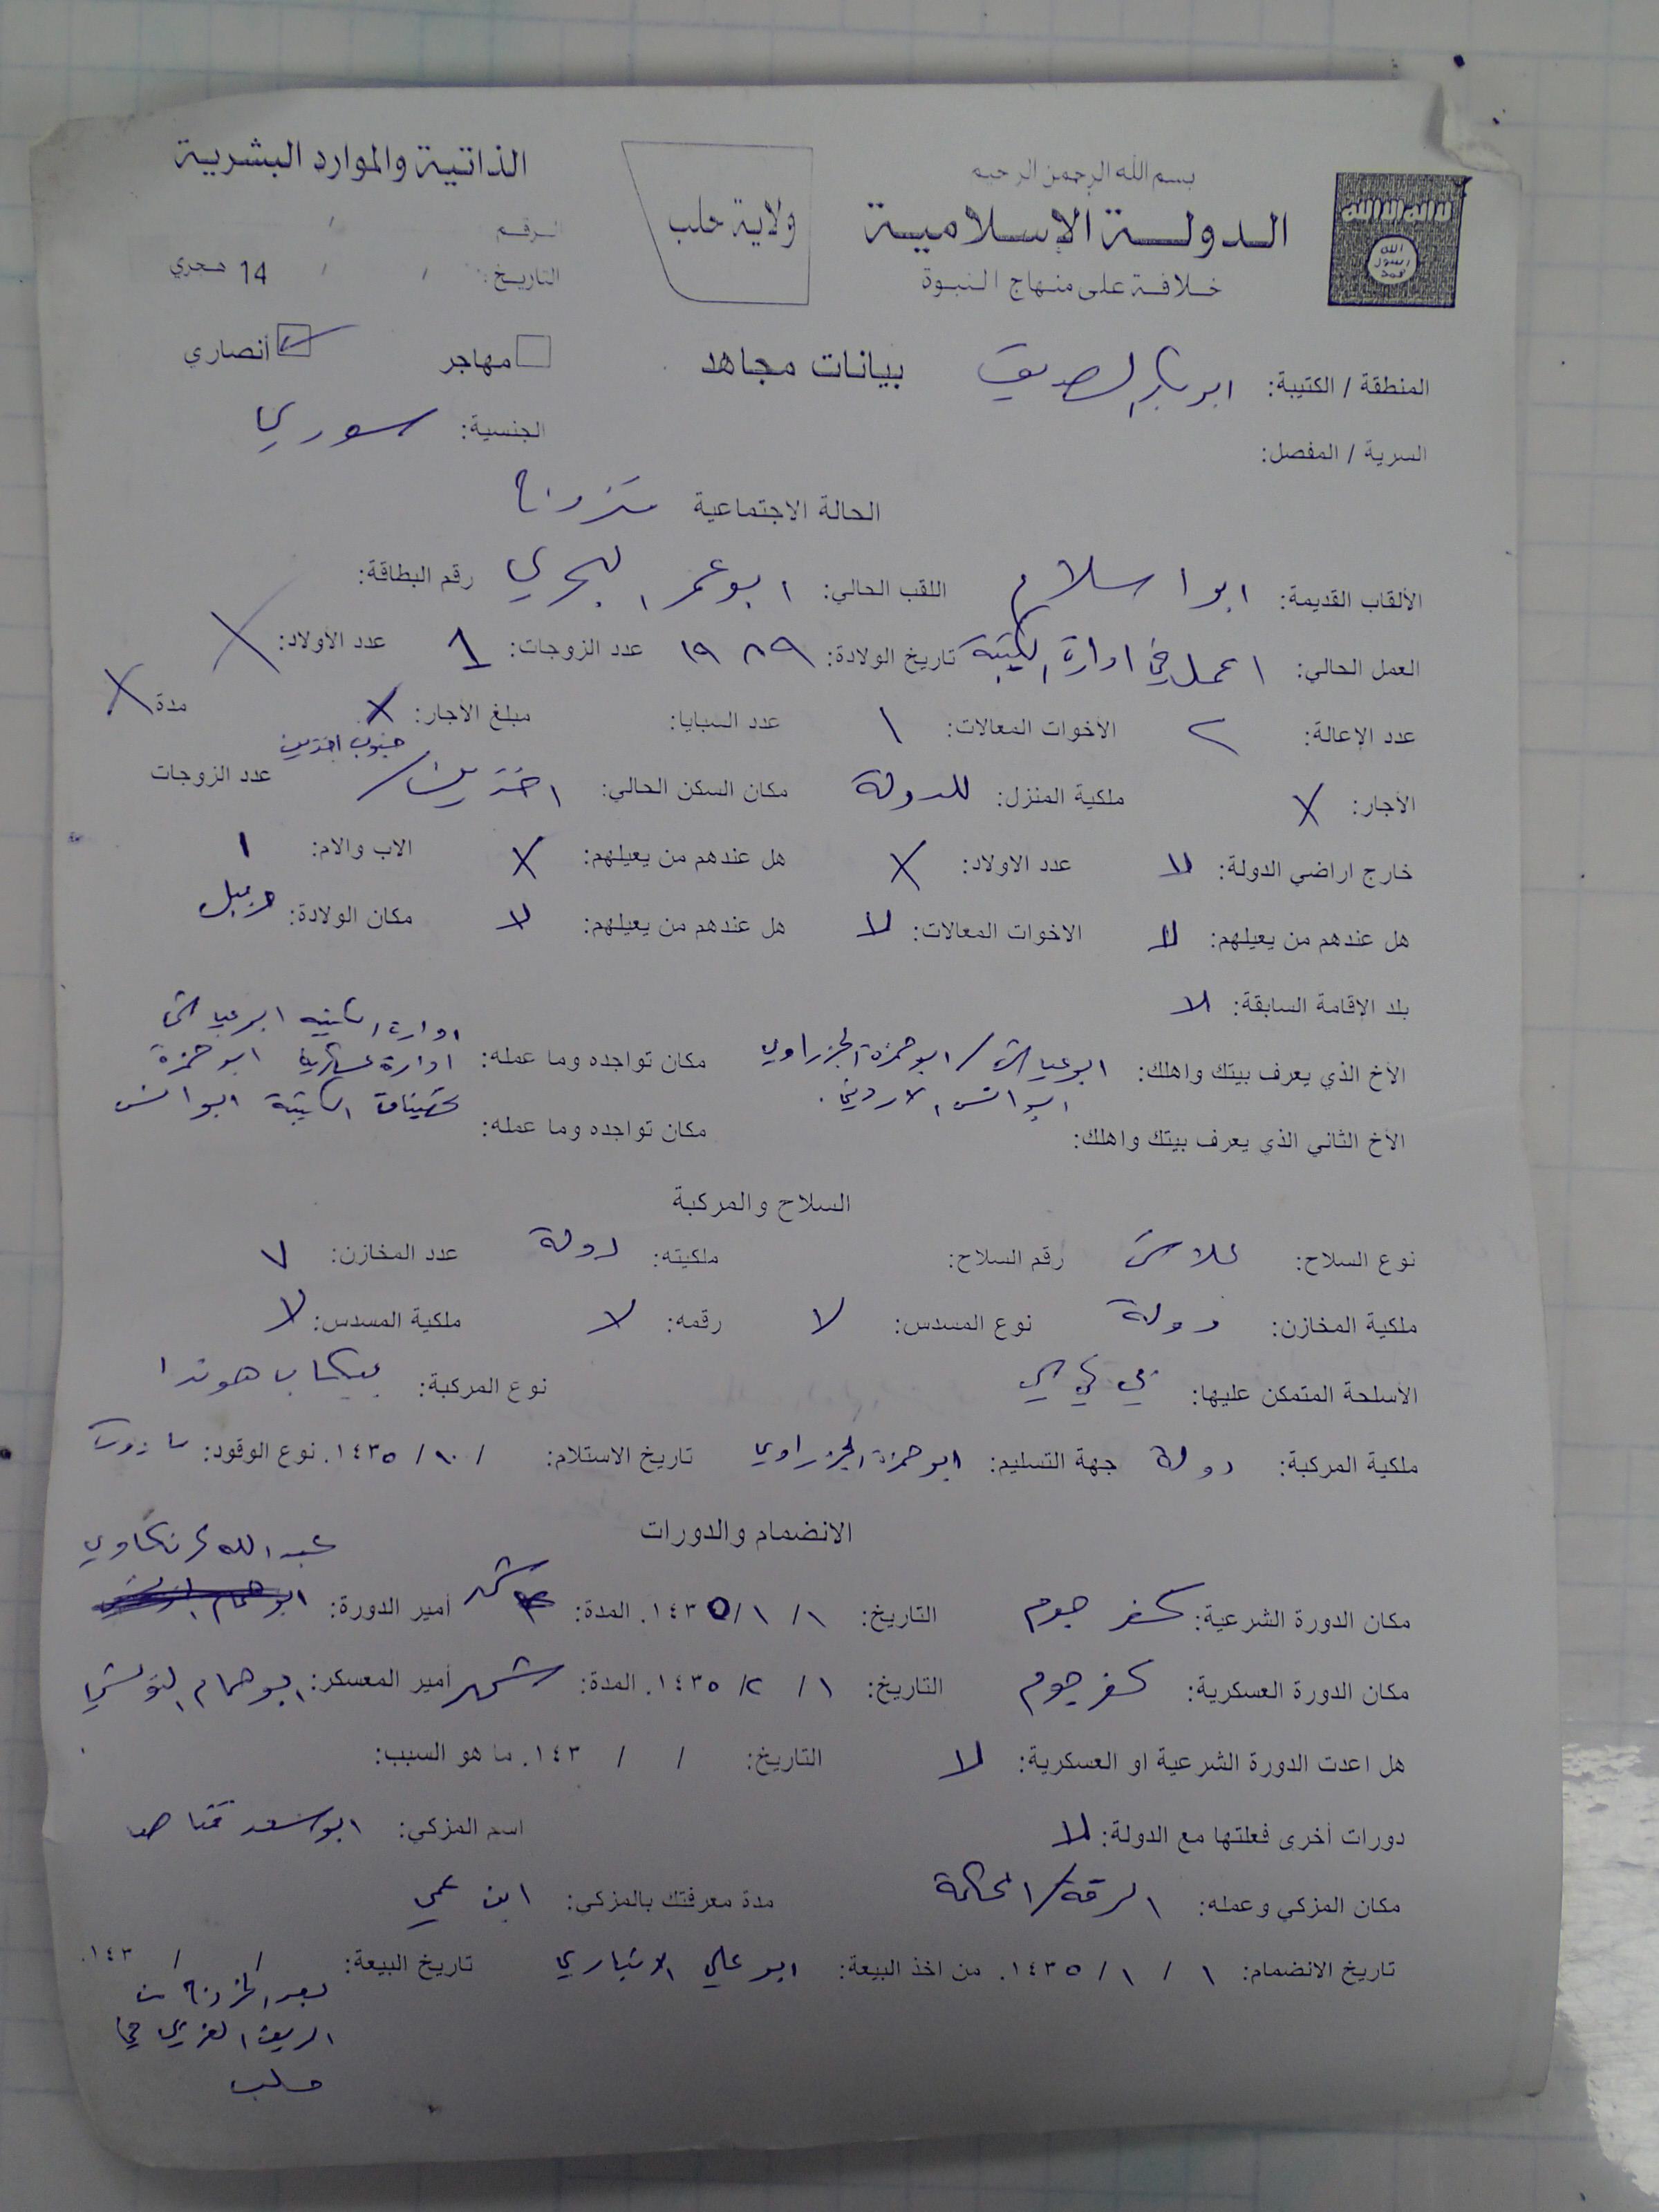 بسم الله الرحمن الرحيم
الدولة الإسلامية
خلافة على منهاج النبوة
لا اله الا الله
الله رسول محمد
ولاية حلب
الذاتية والموارد البشرية
الرقم
التاريخ: / / 14 هجري
بيانات مجاهد
مهاجر أنصاري
المنطقة / الكتيبة: ابو بكر الصديق
الجنسية: سوري
السرية / المفصل:
الحالة الاجتماعية متزوج
الألقاب القديمة: ابو اسلام اللقب الحالي: ابو عمر رقم البطاقة:
العمل الحالي: اعمل في ادارة الكتيبة تاريخ الولادة: ١٩٨٩ عدد الزوجات: 1 عدد الأولاد: X
عدد الإعالة: ٢ الأخوات المعالات: ١ عدد السبايا: مبلغ الأجار: X مدة X
الأجار: X ملكية المنزل: للدولة مكان السكن الحالي: اخترين / جنوب اخترين عدد الزوجات
خارج اراضي الدولة: لا عدد الاولاد: X هل عندهم من يعيلهم: X الاب والام: ١
هل عندهم من يعيلهم: لا الاخوات المعالات: لا هل عندهم من يعيلهم: لا مكان الولادة:
بلد الإقامة السابقة: لا
الأخ الذي يعرف بيتك واهلك: ابو حمزة الجزراوي ابو انس الاردني. مكان تواجده وما عمله: ادارة الكتيبه ادارة ابو حمزة
الأخ الثاني الذي يعرف بيتك واهلك: مكان تواجده وما عمله: الكتيبة ابو انس
السلاح والمركبة
نوع السلاح: رقم السلاح: ملكيته: دولة عدد المخازن: ٧
ملكية المخازن: دولة نوع المسدس: لا رقمه: لا ملكية المسدس: لا
الأسلحة المتمكن عليها: بي كي سي نوع المركبة: بيكاب هوندا
ملكية المركبة: دولة جهة التسليم: ابو حمزة الجزراوي تاريخ الاستلام: / ١٠ / ١٤٣٥. نوع الوقود: مازوت
الانضمام والدورات
مكان الدورة الشرعية: كفر جوم التاريخ: ١ / ١ / ١٤٣٥. المدة: شهر أمير الدورة: عبد الله
مكان الدورة العسكرية: كفر جوم التاريخ: ١ / ٢ / ١٤٣٥. المدة: شهر أمير المعسكر: ابو همام التونسي
هل اعدت الدورة الشرعية او العسكرية: لا التاريخ: / / ١٤٣. ما هو السبب:
دورات أخرى فعلتها مع الدولة: لا اسم المزكي: ابو سعد
مكان المزكي وعمله: الرقة / المحكمة مدة معرفتك بالمزكي: ابن عمي
تاريخ الانضمام: ١ / ١ / ١٤٣٥. من اخذ البيعة: ابو علي الانباري تاريخ البيعة: / / ١٤٣.
بعد الخروج من
الريف الغربي في
حلب